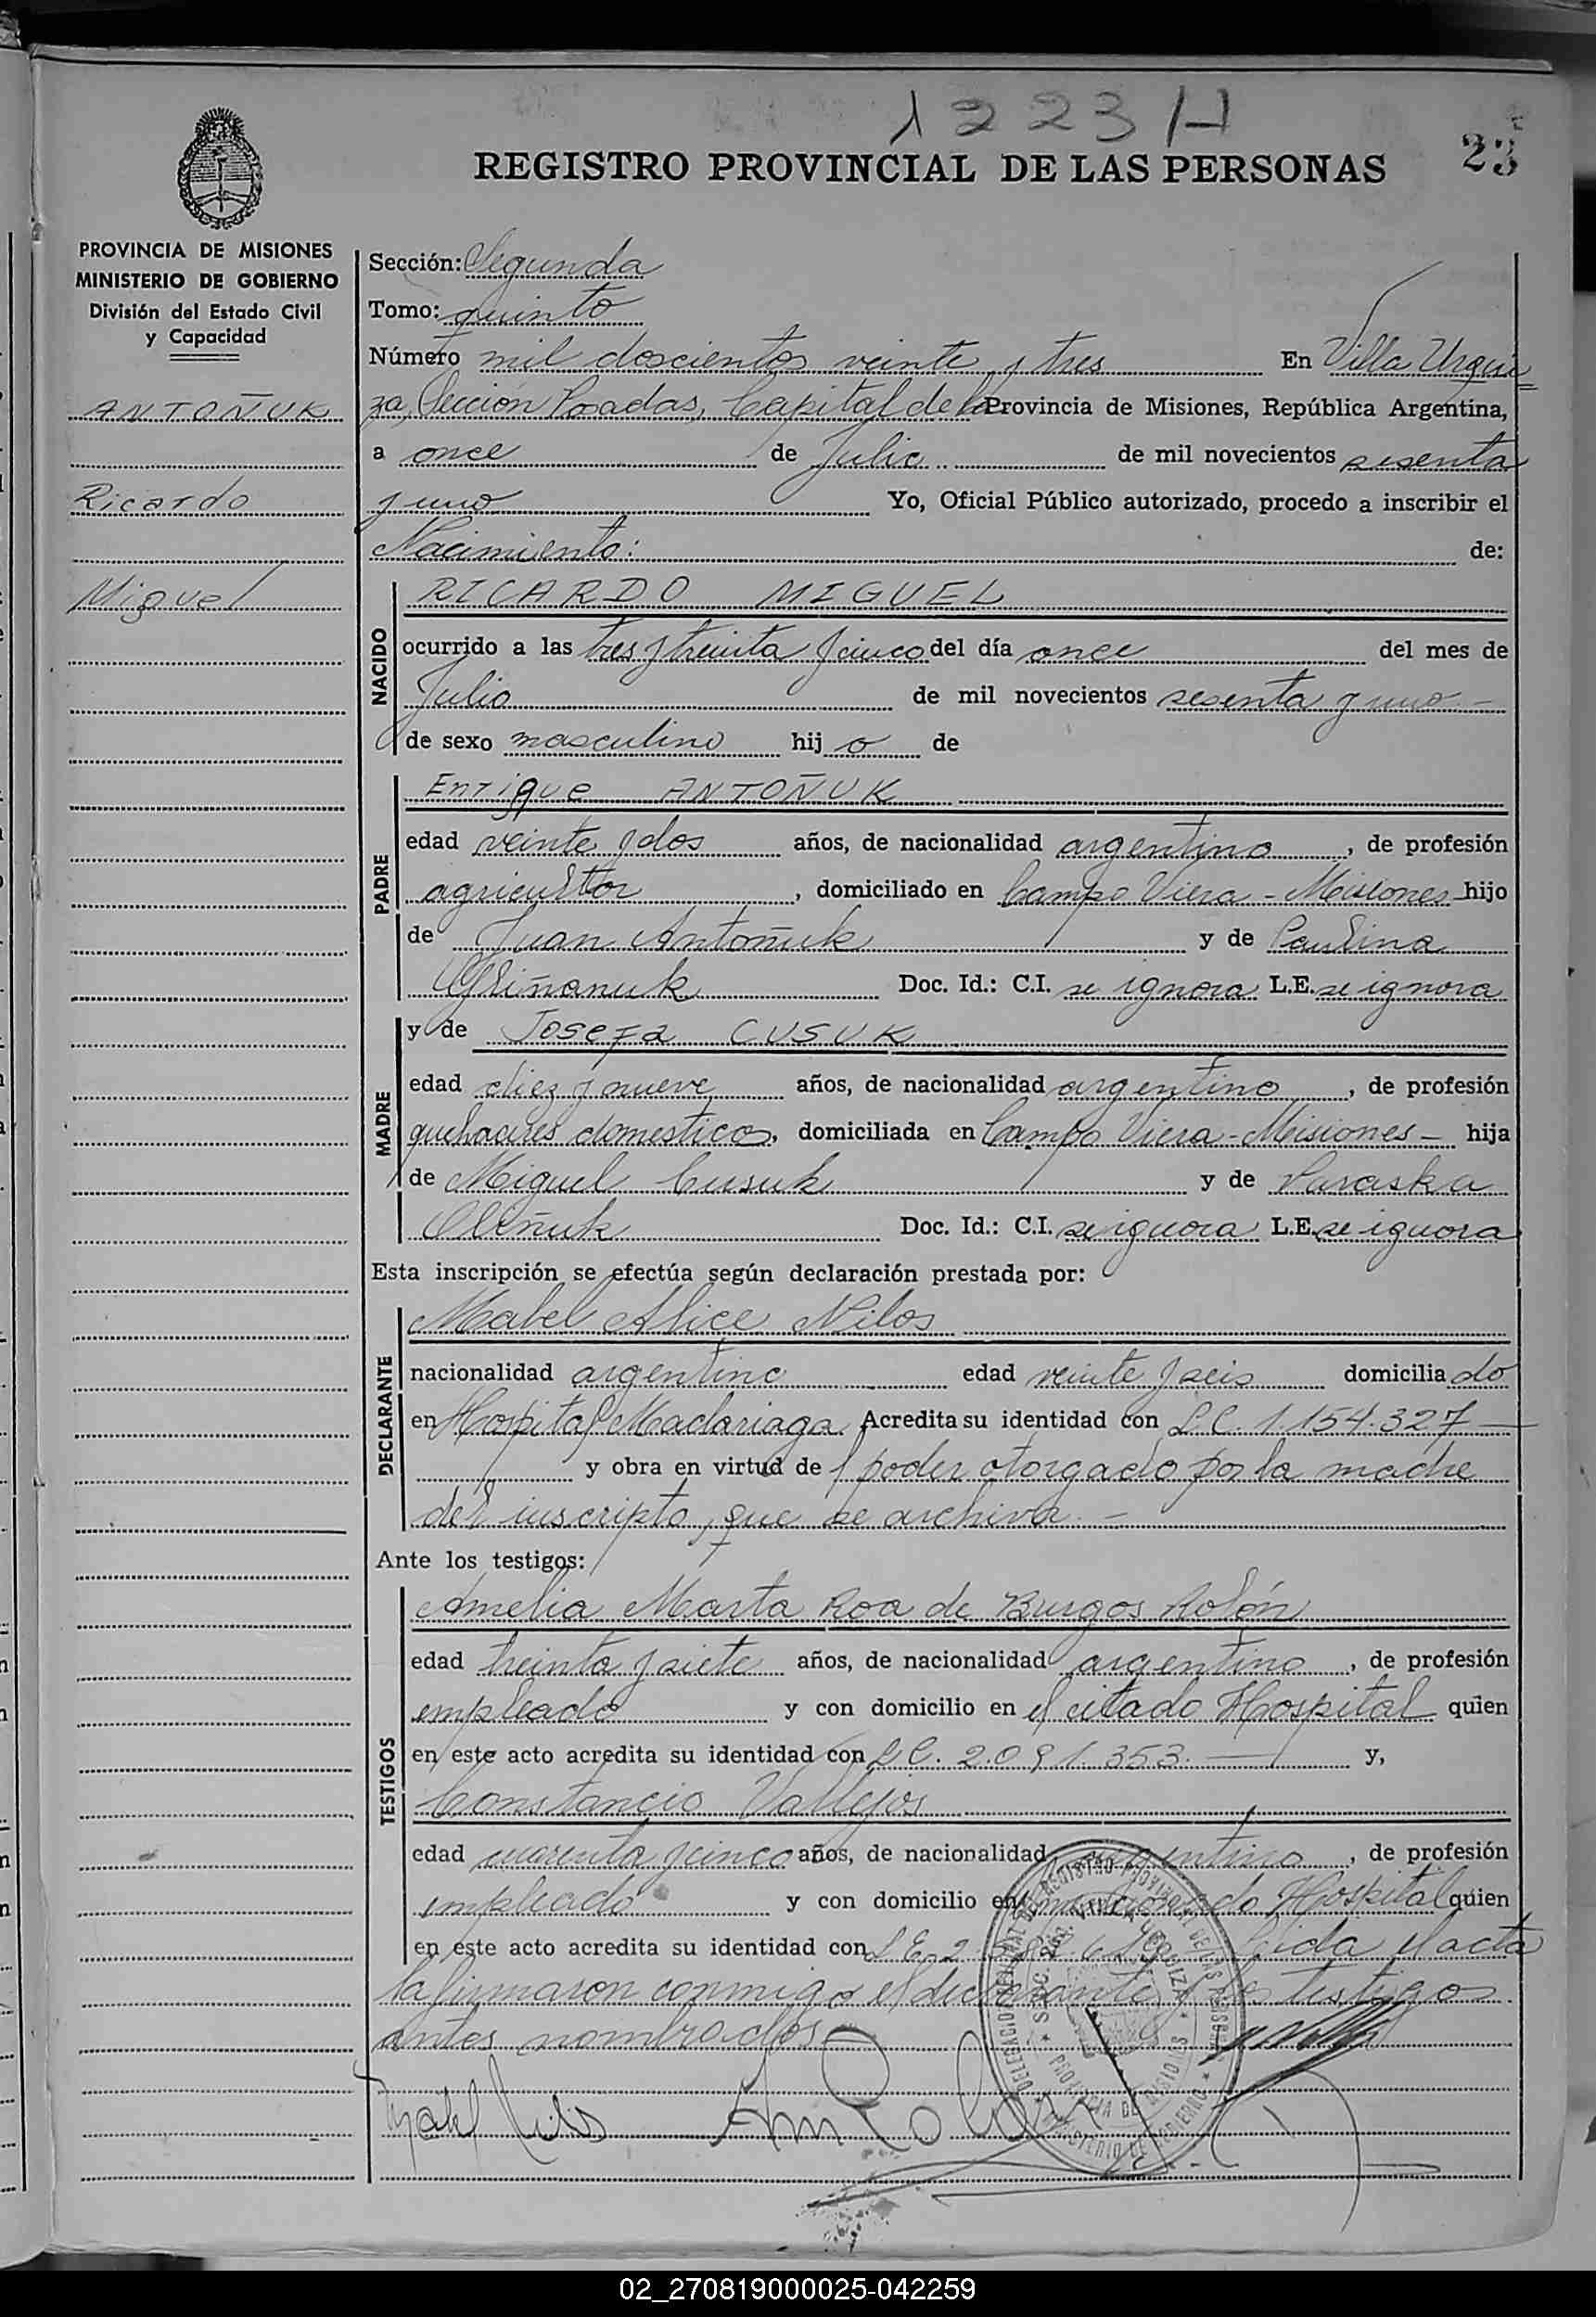 1223 H
REGISTRO PROVINCIAL DE LAS PERSONAS
23
PROVINCIA DE MISIONES
MINISTERIO DE GOBIERNO
División del Estado Civil
y Capacidad
ANTOÑUK
Ricardo
Miguel
Sección: Segunda
Tomo: quinto
Número mil doscientos veinte y tres En Villa Urqui=
za, Sección Posadas, Capital de la Provincia de Misiones, República Argentina,
a once de Julio de mil novecientos sesenta
y uno Yo, Oficial Público autorizado, procedo a inscribir el
Nacimiento: de:
NACIDO
RICARDO MIGUEL
ocurrido a las tres y treinta y cinco del día once del mes de
Julio de mil novecientos sesenta y uno -
de sexo masculino hij o de
PADRE
Enrique ANTOÑUK
edad veinte y dos años, de nacionalidad argentino, de profesión
agricultor, domiciliado en Campo Viera - Misiones hijo
de Juan Antoñuk y de Paulina
Doc. Id.: C.I. se ignora L.E. se ignora
MADRE
y de Josefa CUSUK
edad diez y nueve años, de nacionalidad argentino, de profesión
quehaceres domesticos, domiciliada en Campo Viera - Misiones - hija
de Miguel Cusuk y de Paraska
Oleñuk Doc. Id.: C.I. se ignora L.E. se ignora
Esta inscripción se efectúa según declaración prestada por:
DECLARANTE
Mabel Alice Nilos
nacionalidad argentino edad veinte y seis domicilia do
en Hospital Madariaga. Acredita su identidad con L.C. 1.154.327 —
y obra en virtud de poder otorgado por la madre
del inscripto, que se archiva. -
Ante los testigos:
TESTIGOS
Amelia Marta Roa de Burgos Rolón
edad treinta y siete años, de nacionalidad argentino, de profesión
empleado y con domicilio en el citado Hospital quien
en este acto acredita su identidad con L.C. 2.091.353. — y,
Constancio Vallejos
edad cuarenta y cinco años, de nacionalidad argentino, de profesión
empleado y con domicilio en mencionado Hospital quien
en este acto acredita su identidad con L.E. 2 Leida el acta
la firmaron conmigo el declarante y los testigos
antes nombrados -
02_270819000025-042259